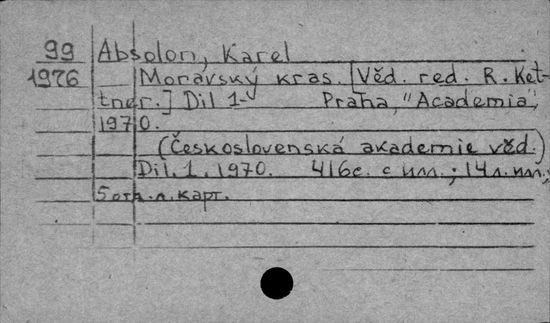 99 Absolon, Karel
1976 Moravský kras. [Věd. red. R. Ket-
tner.] Díl 1- Praha, "Academia",
1970.
(Československá akademie věd.)
Díl. 1. 1970. 416с. с илл.; 14л. илл.;
5 отд. л. карт.